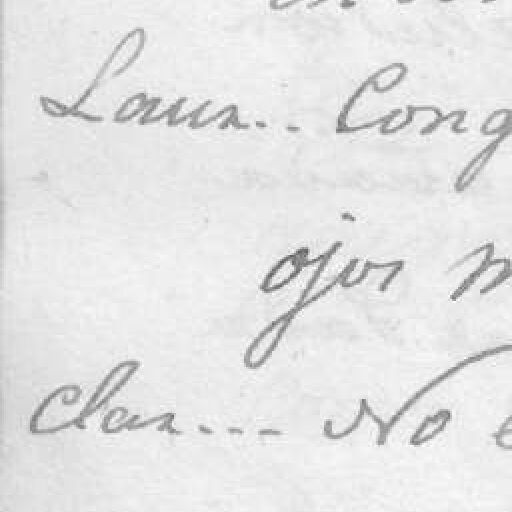 Laur.. Cong
ojos m
Clar... No e